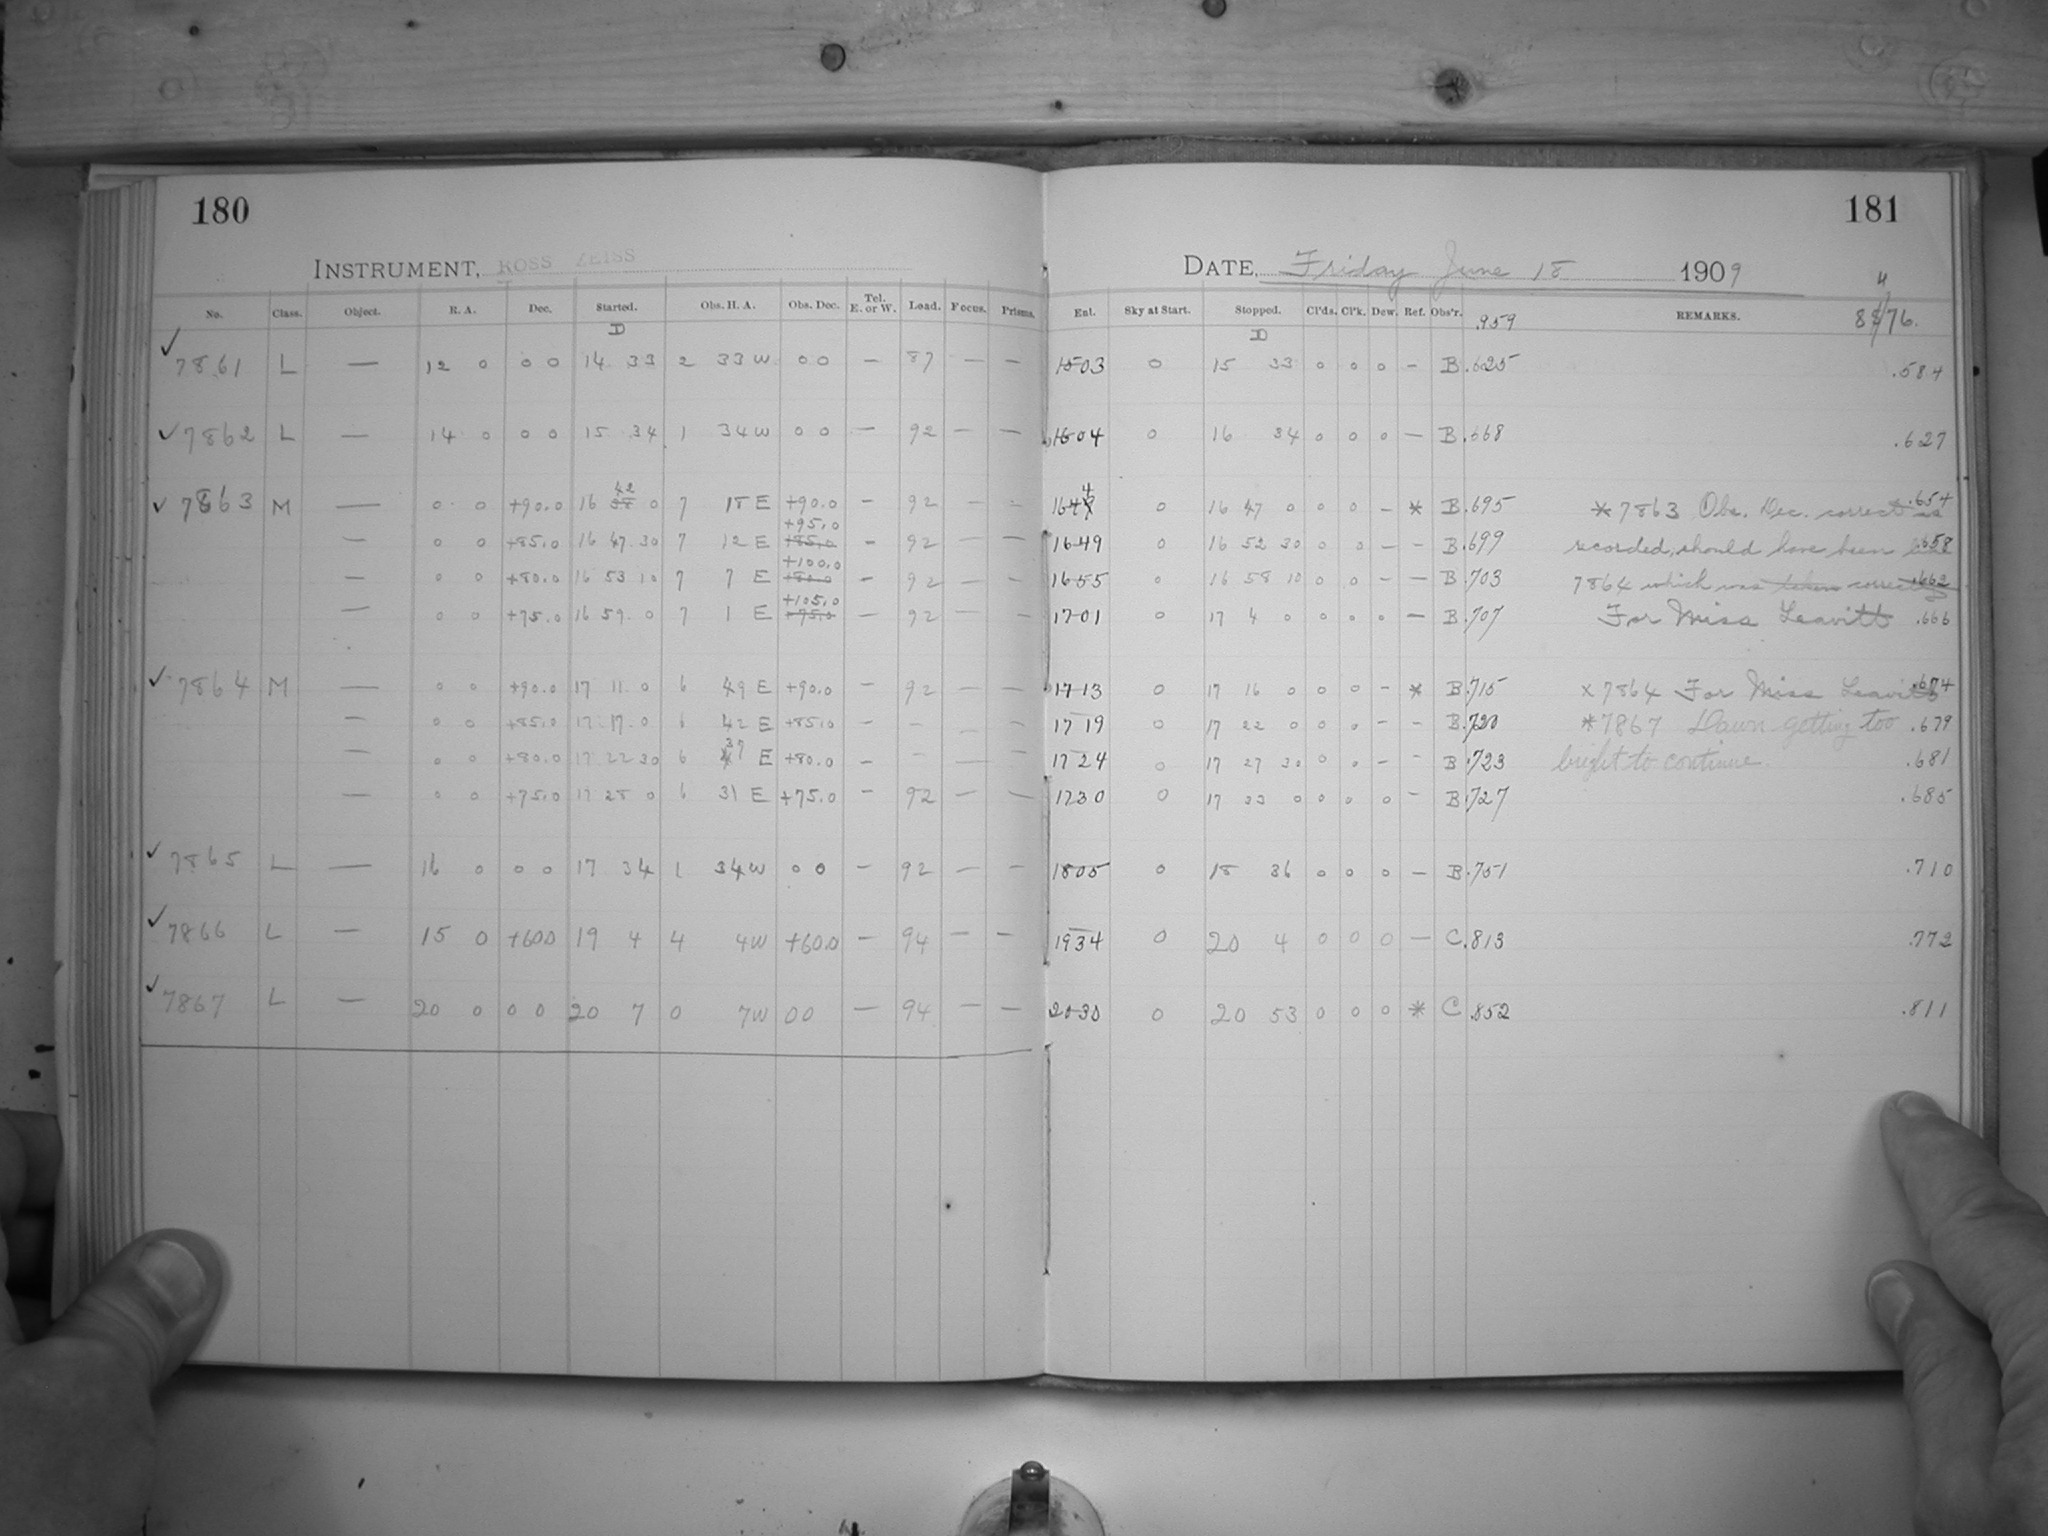 180
181
INSTRUMENT, ROSS ZEISS
DATE, Friday June 18 1909
No. Class. Object. R. A. Dec. Started. Obs. H. A. Obs. Dec. Tel. E. or W. Load. Focus. Prisms. Ent. Sky at Start. Stopped. Cl'ds. Cl'k. Dew. Ref. Obs'r. .959 REMARKS.
D D
✓ 7861 L — 12 0 0 0 14 33 2 33 W 0 0 — 87 — — 1503 0 15 33 0 0 0 – B .625 .584
✓ 7862 L — 14 0 0 0 15 34 1 34 W 0 0 — 92 — — 1604 0 16 34 0 0 0 — B .668 .627
✓ 7863 M — 0 0 +90.0 16 42 0 7 18 E +90.0 – 92 — – 1644 0 16 47 0 0 0 – * B .695 * 7863 Obs. Dec. correct as .654
— 0 0 +85.0 16 47 30 7 12 E +95.0 +85.0 – 92 — — 1649 0 16 52 30 0 0 – – B .699 recorded, should have been .658
— 0 0 +80.0 16 53 10 7 7 E +100.0 +80.0 – 92 — — 1655 0 16 58 10 0 0 – – B .703 7864 which was taken correctly .662
— 0 0 +75.0 16 59 0 7 1 E +105.0 +75.0 — 92 — — 1701 0 17 4 0 0 0 0 — B .707 For Miss Leavitt .666
✓ 7864 M — 0 0 +90.0 17 11 0 6 49 E +90.0 – 92 — — 1713 0 17 16 0 0 0 – * B .715 x 7864 For Miss Leavitt .674
— 0 0 +85.0 17 17 0 6 42 E +85.0 – – — — 1719 0 17 22 0 0 0 – – B .720 * 7867 Dawn getting too .679
— 0 0 +80.0 17 22 30 6 37 E +80.0 – – — — 1724 0 17 27 30 0 0 – – B .723 bright to continue. .681
— 0 0 +75.0 17 28 0 6 31 E +75.0 – 92 — — 1730 0 17 33 0 0 0 0 – B .727 .685
✓ 7865 L — 16 0 0 0 17 34 1 34 W 0 0 — 92 — – 1805 0 18 36 0 0 0 — B .751 .710
✓ 7866 L — 15 0 +60.0 19 4 4 4 W +60.0 – 94 — — 1934 0 20 4 0 0 0 — C .813 .772
✓ 7867 L — 20 0 0 0 20 7 0 7 W 0 0 — 94 — — 2030 0 20 53 0 0 0 * C .852 .811